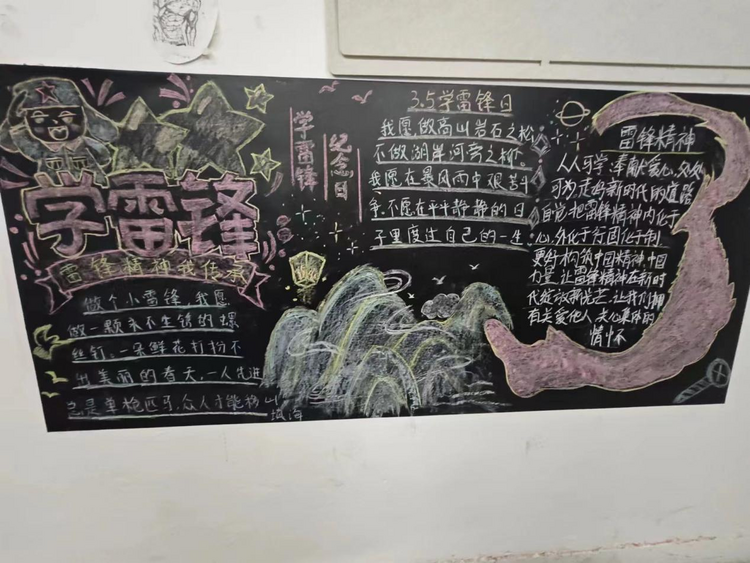 学雷锋
雷锋精神我传承
做个小雷锋,我愿
做一颗永不生锈的螺
丝钉,一朵鲜花打扮不
出美丽的春天,一人先进
总是单枪匹马,众人才能移山
填海
学雷锋
纪念日
3.5学雷锋日
我愿做高山岩石之松
不做湖岸河旁之柳
我愿在暴风雨中艰苦斗
争,不愿在平平静静的日
子里度过自己的一生
雷锋精神
人人可学,奉献爱心,处处
可为走好新时代的道路
自觉把雷锋精神内化于
心,外化于行固化于制
更好构筑中国精神中国
力量,让雷锋精神在新时
代绽放新光芒,让我们拥
有关爱他人,关心集体的
情怀